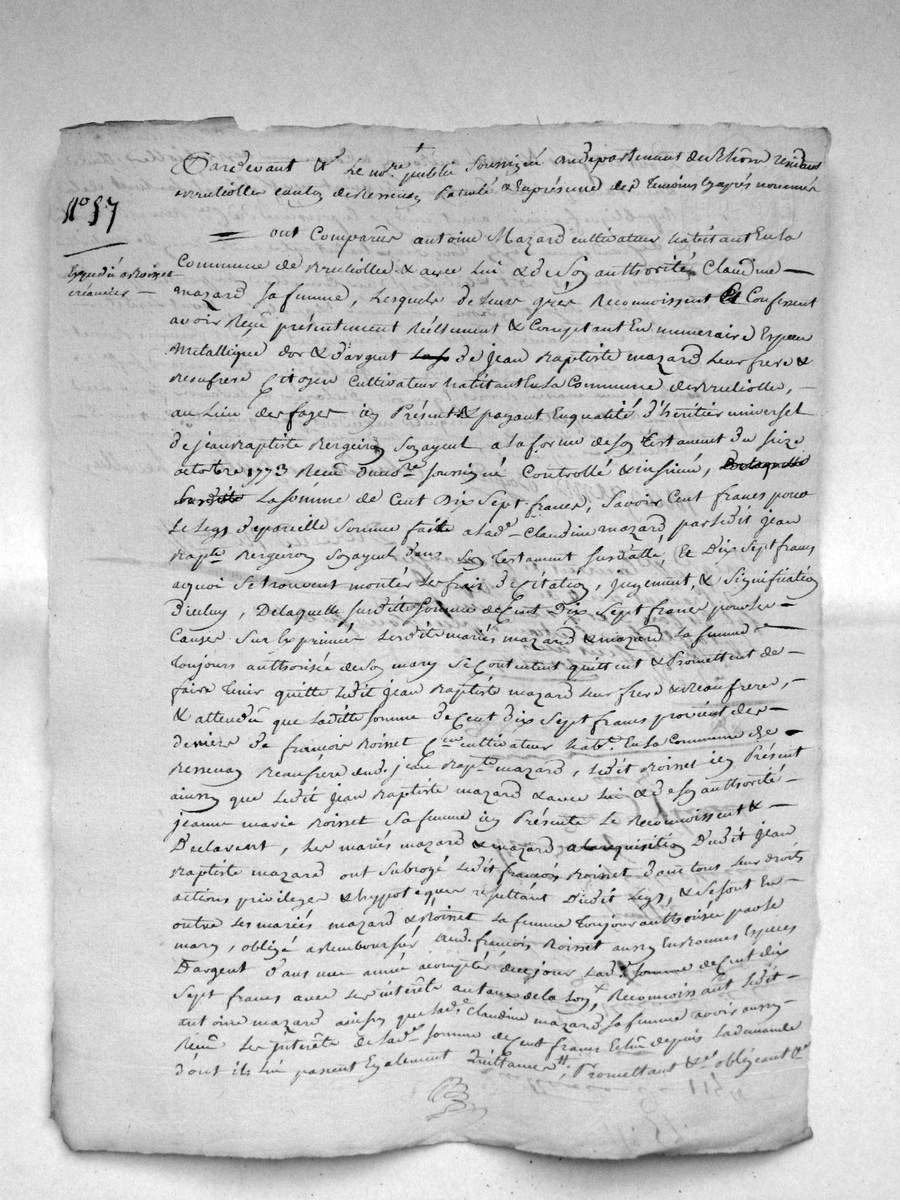 Pardevant Le nore. public Soussigné au departement du Rhône residant
a Brulliolle canton de Bessenay Patenté & En présence des temoins Cy après nommés
No. 57
ont Comparûs antoine Mazard cultivateur habitant En la
Expedié a Roinet
créancier
Commune de Brulliolle & avec Lui & de Son authorité Claudine
mazard Sa femme, Lesquels de Leurs grés Reconnoissent & Confessent
avoir Reçu présentement Réellement & Comptant En numeraire Espece
Metallique d'or & d'argent de jean Baptiste mazard Leur frere &
Beaufrere Citoyen Cultivateur habitant En La Commune de Brulliolle,
au Lieu de foger icy Présent & payant En qualité d'héritier universel
de jean Baptiste Bergeron Son ayeul a la forme de Son testament du Seize
octobre 1773 Reçu Dud. nore. Soussigné Controllé & insinué, De laquelle
Susdite La Somme de Cent Dix Sept francs, Savoir Cent francs pour
Le Legs d'apareille Somme faitte a lade. Claudine mazard par Ledit jean
Bapte. Bergeron Son ayeul dans Son testament Susdatté, Et Dix Sept francs
aquoi Se trouvent montés Les frais de Citation, jugement, & Signification
D'icelui, De laquelle Susditte Somme de Cent Dix Sept francs pour Les
Causes Sus Exprimées Lesdits mariés mazard & mazard Sa femme
toujours authorisée de Son mary Se Contentent quittent & Promettent de
faire tenir quitte Ledit jean Baptiste mazard Leur frere & Beaufrere,
& attendû que Laditte Somme de Cent dix Sept francs provient des
deniers de françois Roinet Cen. cultivateur habt. En La Commune de
Bessenay Beaufrere dud. jean Bapte. mazard, Ledit Roinet icy Présent
ainsy que Ledit jean Baptiste mazard & avec Lui & de Son authorité
jeanne marie Roinet Sa femme icy Présente Le Reconnoissent &
Declarent, Les mariés mazard & mazard a la requisition Dudit jean
Baptiste mazard ont Subrogé Ledit françois Roinet dans tous Leurs droits
actions privileges & hypoteques resultant Dudit Legs, & Se Sont En
outre Les mariés mazard & Roinet Sa femme toujours authorisée par Le
mary, obligé a Rembourser aud. françois Roinet aussy En Bonnes Especes
D'argent dans une année a compter de ce jour Lade. Somme de Cent dix
Sept francs avec Les interêts au taux de la Loy, Reconnoissant Ledit
antoine mazard ainsy que lade. Claudine mazard Sa femme avoir aussy
Reçu Les Interêts de lade. Somme de Cent francs Echus depuis La demande
dont ils Lui passent Egalement Quittance, Promettant &a. obligeant &a.